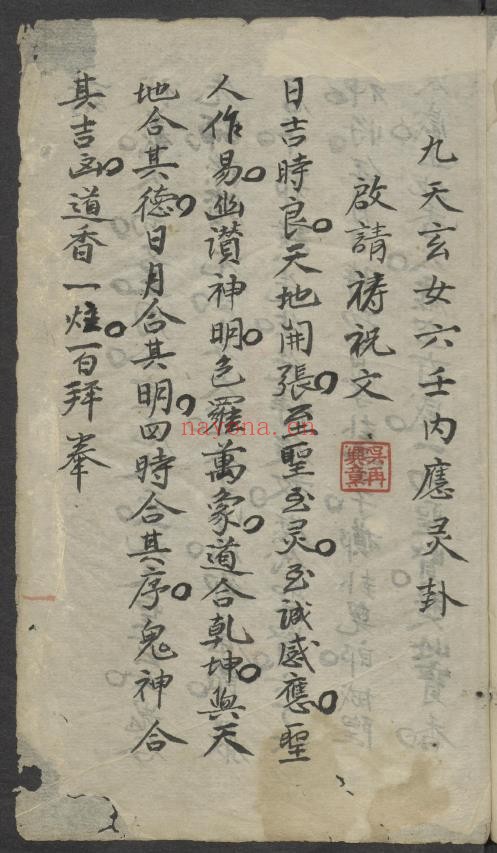 九天玄女六壬内應灵卦
啟請祷祝文
日吉時良。天地開張。至聖至灵。至誠感應。聖
人作易。幽讚神明。包羅萬象。道合乾坤。與天
地合其德。日月合其明。四時合其序。鬼神合
其吉凶。道香一炷。百拜奉
nayona.cn